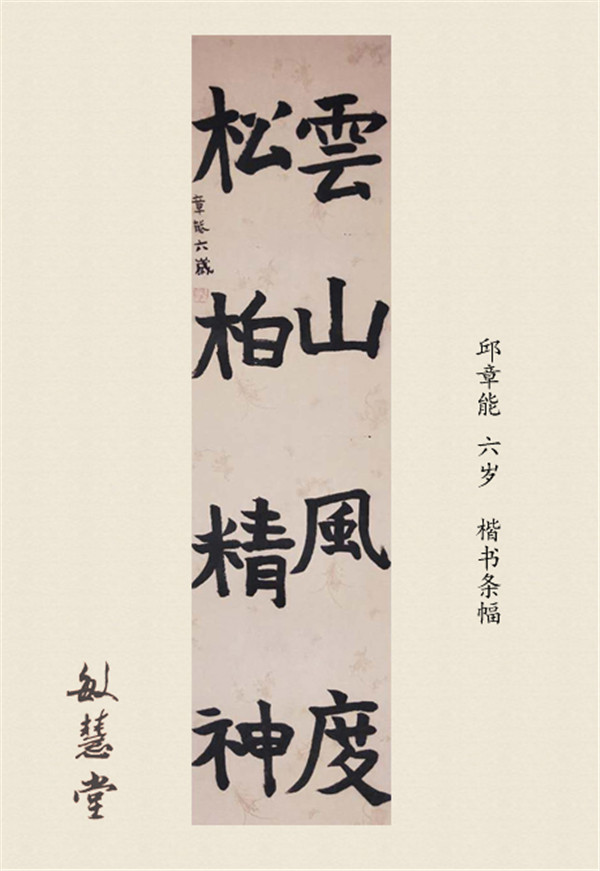 雲山風度
松柏精神
章能六歲
邱章能 六岁 楷书条幅
敏慧堂